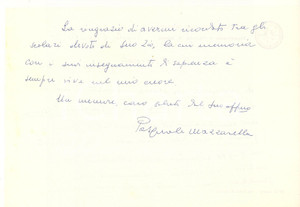 La ringrazio di avermi ricordato tra gli
scolari devoti di Suo Zio, la cui memoria
con i suoi insegnamenti di sapienza è
sempre viva nel mio cuore.
Un memore, caro saluto dal Suo aff.mo
Pasquale Mazzarella